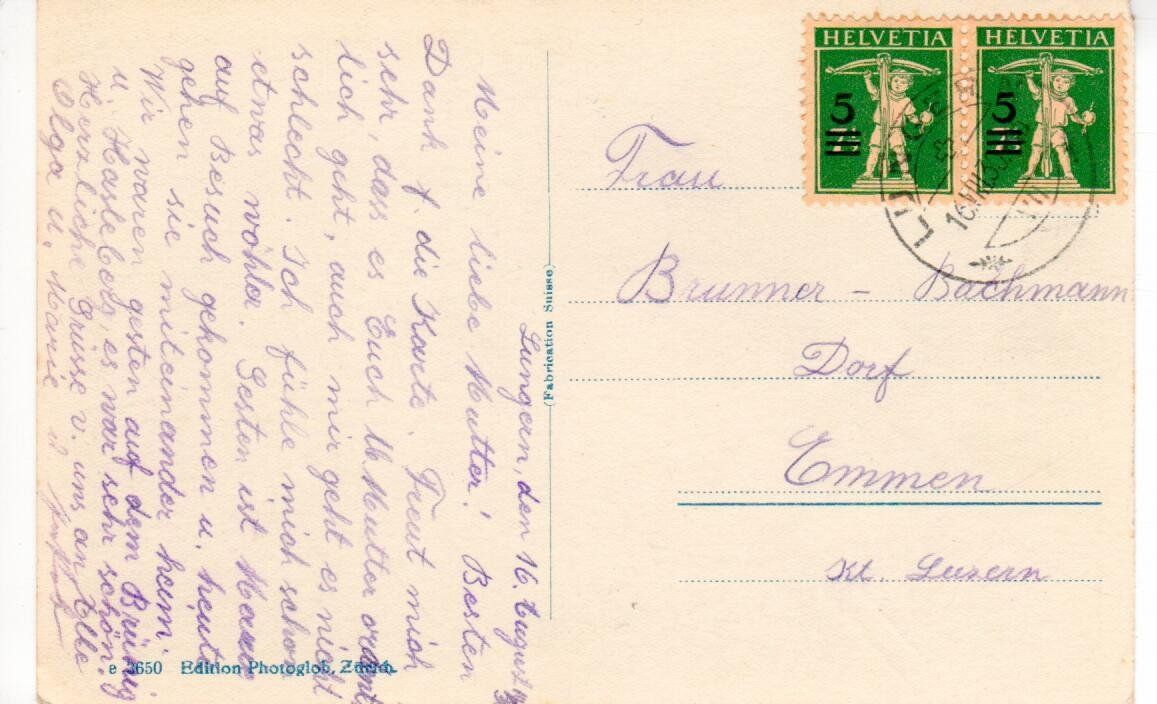 Lungern, den 16. August
Meine liebe Mutter! Besten
Dank f. die Karte. Freut mich
sehr, dass es Euch l. Mutter
lich geht, auch mir geht es nicht
schlecht. Ich fühle mich schon
etwas wöhler. Gesten ist
auf Besuch gekommen u. heute
gehen sie miteinander heim.
Wir waren gesten auf dem Brünig
u. Hasleberg, es war sehr schön.
Herzliche Grüsse v. uns an Alle
Olga u. Marie
(Fabrication Suisse)
e 3650 Edition Photoglob, Zürich.
HELVETIA
5
HELVETIA
5
LUNGERN
16.VIII.3
Frau
Brunner - Bachmann
Dorf
Emmen
Kt. Luzern